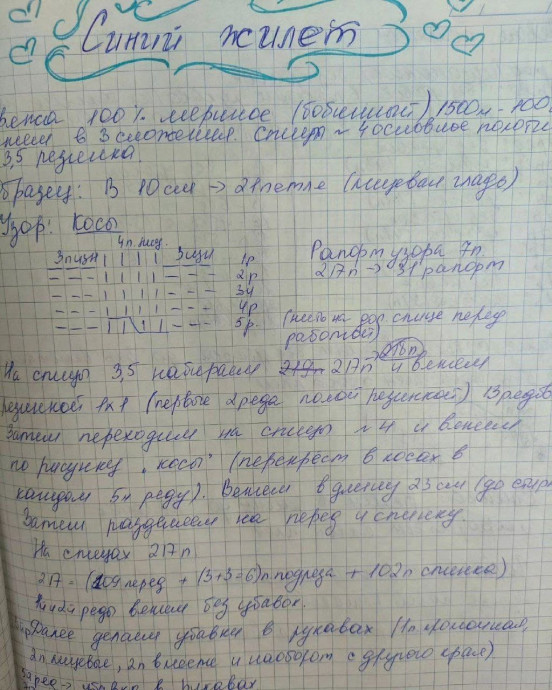 Синий жилет
100% меринос (бобинный) 1500м - 100
в 3 сложения. Спицы № 4 основное полотно
3,5 резинка.
Образец: В 10 см → 21 петле (лицевая гладь)
Узор: Косы
4п. лиц.
3п изн 3 изн 1р
2р.
3ч
4р
5р.
Рапорт узора 7п.
217п → 31 рапорт
(нить на доп спице перед
работой)
На спицы 3,5 набираем 219п 217п → 218п и вяжем
резинкой 1x1 (первые 2 ряда полой резинкой) 13 рядов
Затем переходим на спицы № 4 и вяжем
по рисунку „косы" (перекрест в косах в
каждом 5м ряду). Вяжем в длину 23 см (до
Затем разделяем на перед и спинку
На спицах 217п
217 = (109 перед + (3+3=6)п. подреза + 102п спинка)
ряды вяжем без убавок.
Далее делаем убавки в рукавах (1п. кромочная,
2п лицевые, 2п вместе и наоборот с другого края)
убавка в рукавах